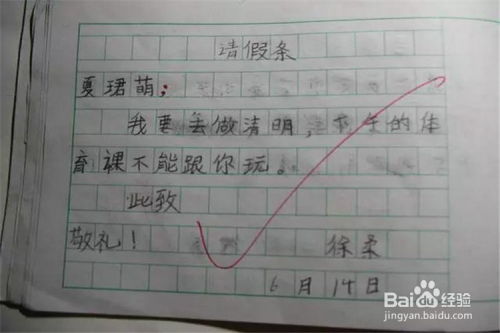 请假条
夏珺萌：
我要去做清明，下午的体
育裸不能跟你玩。
此致
敬礼！
徐柔
6月14日
Baidu经验
jingyan.baidu.com